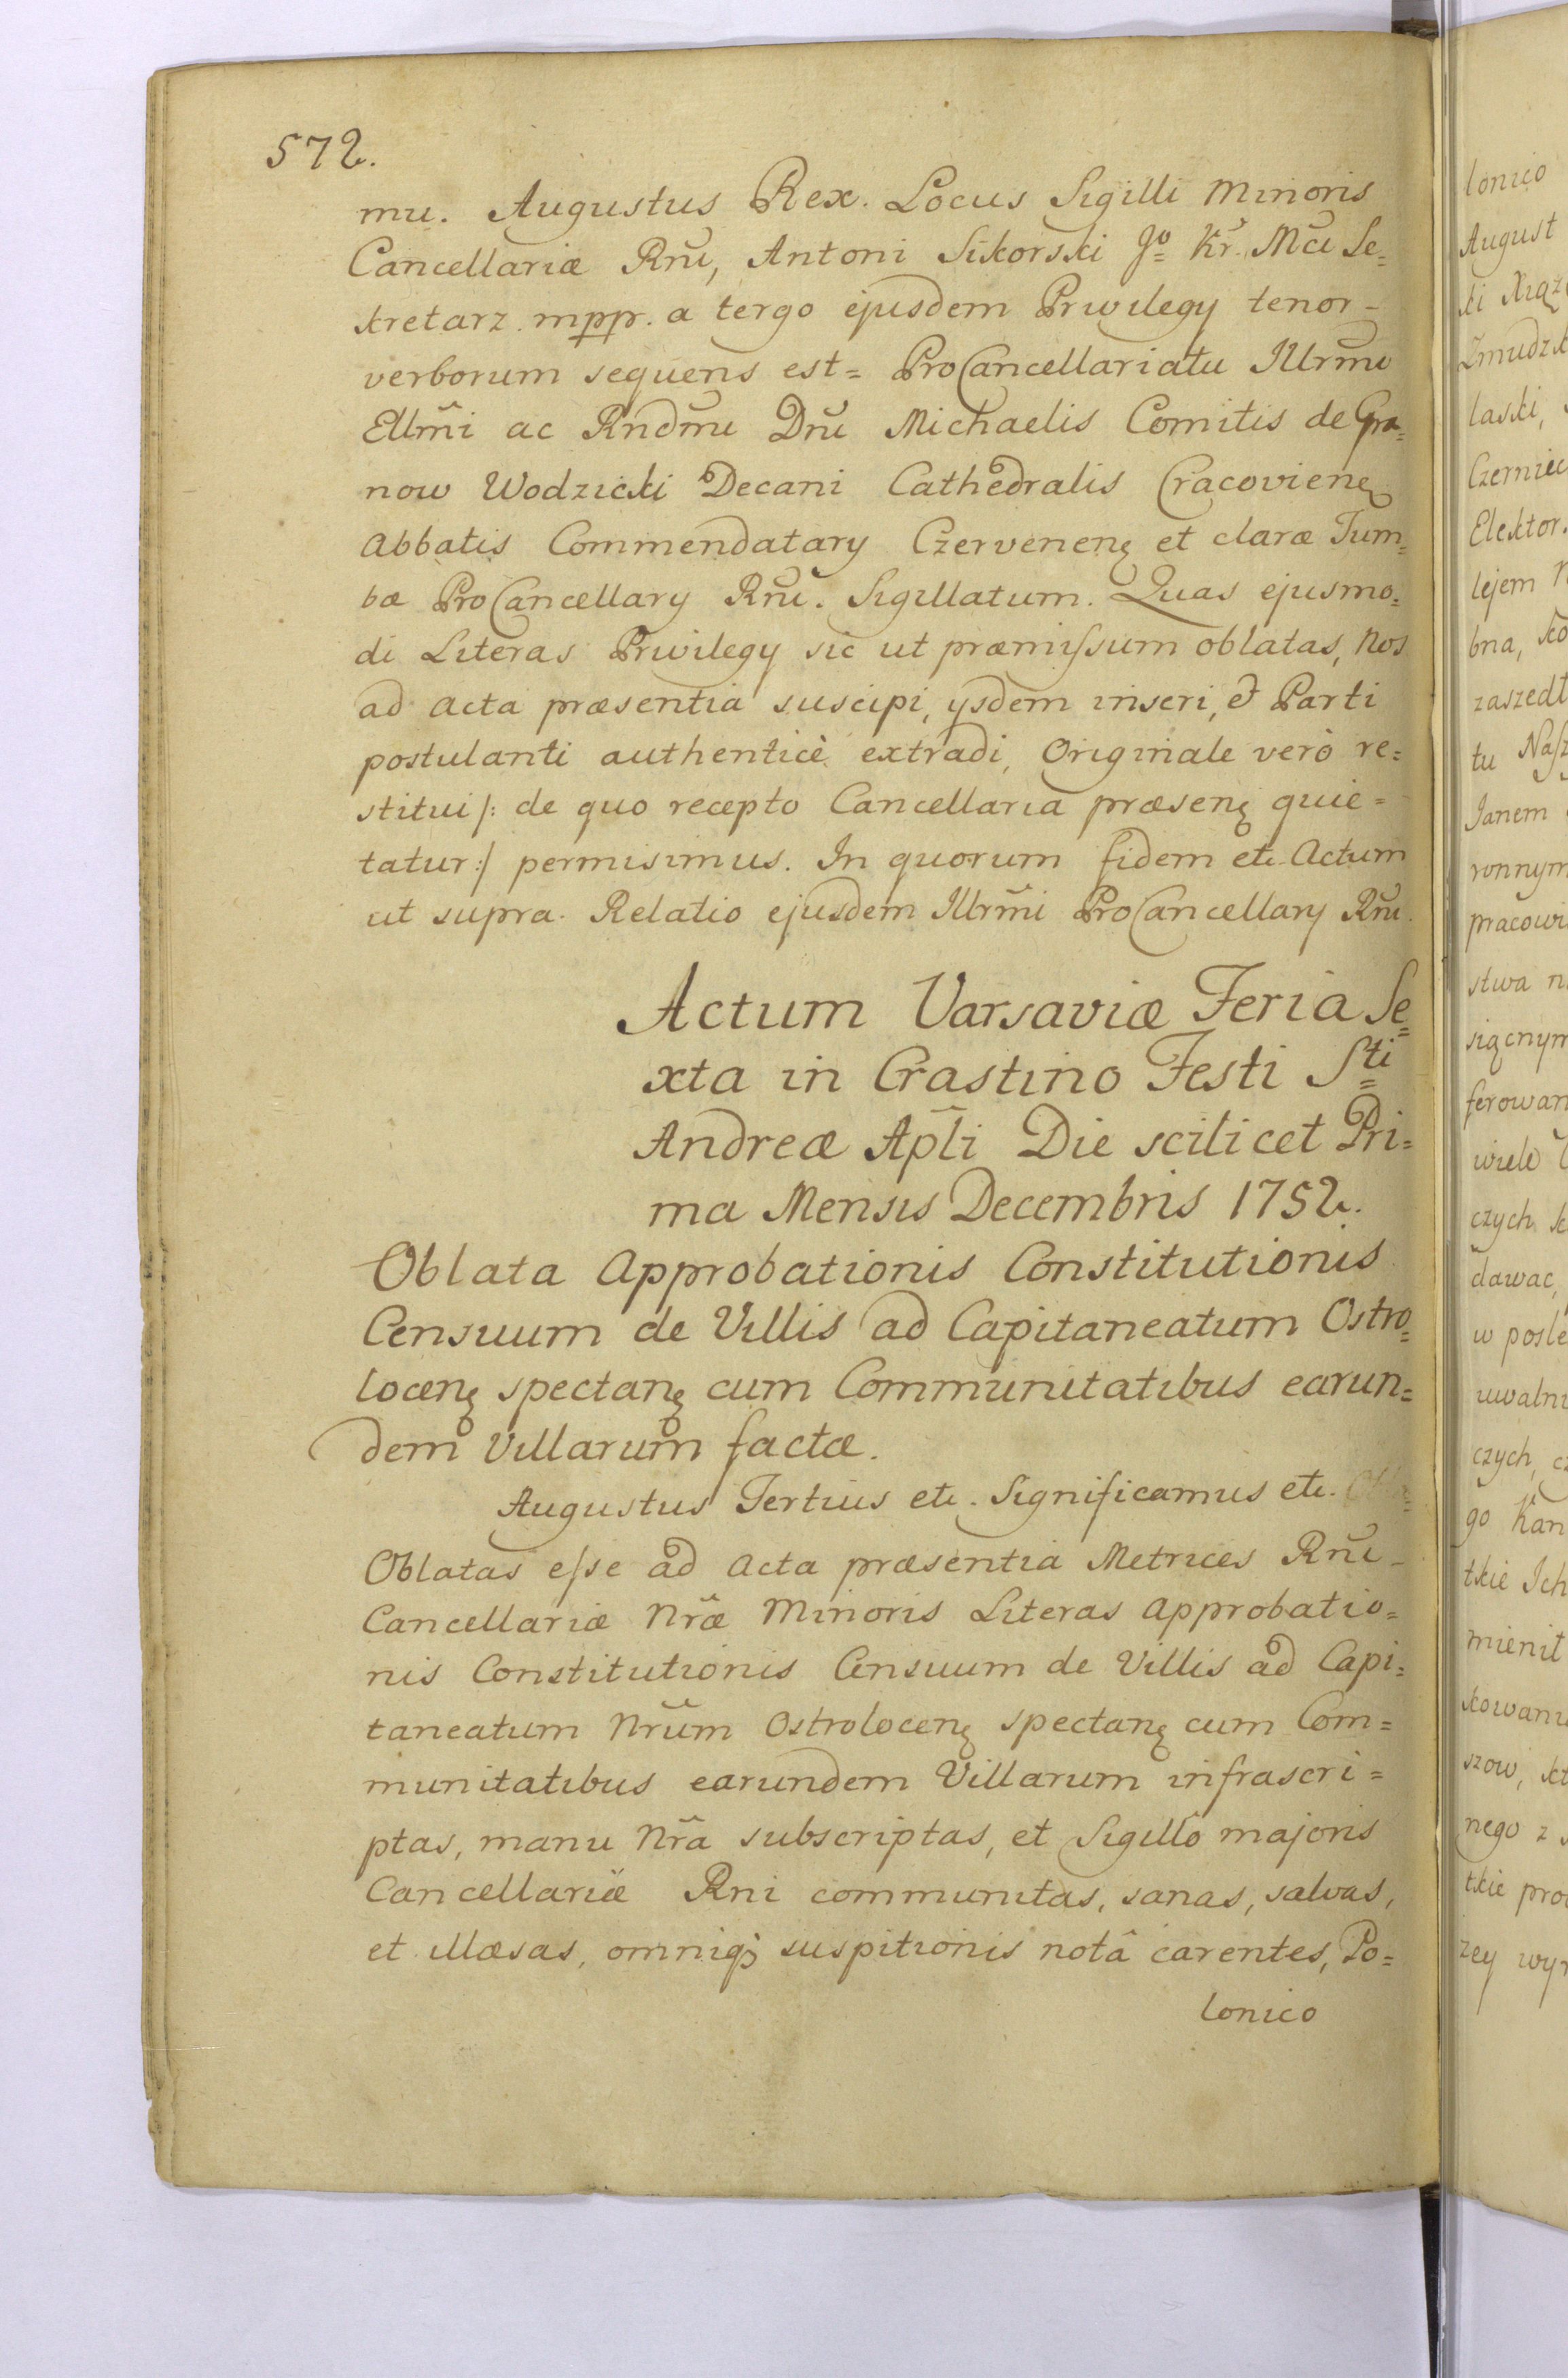 572.
mu. Augustus Rex. Locus Sigilli Minoris
Cancellariæ Rni, Antoni Sikorski Jo= Kr. Mci Se=
kretarz. mppr. a tergo ejusdem Priwilegy tenor-
verborum sequens est= ProCancellariatu Illrmi
Ellmi ac Rndmi Dni Michaelis Comitis de Gra=
now Wodzicki Decani Cathedralis Cracovienę
Abbatis Commendatary Czervenenę et claræ Tum=
bæ ProCancellary Rni. Sigillatum. Quas ejusmo=
di Literas Priwilegy sic ut præmissum oblatas, Nos
ad Acta præsentia suscipi, ysdem inseri, et Parti
postulanti authenticè extradi, Originale verò re=
stitui /: de quo recepto Cancellaria præsenę quie=
tatur :/ permisimus. In quorum fidem etc. Actum
ut supra. Relatio ejusdem Illrmi ProCancellary Rni.
Actum Varsaviæ Feria Se=
xta in Crastino Festi Sti
Andreæ Apli Die scilicet Pri=
ma Mensis Decembris 1752.
Oblata Approbationis Constitutionis
Censuum de Villis ad Capitaneatum Ostro=
locenę spectanę cum Communitatibus earun=
dem Villarum factæ.
Augustus Tertius etc. Significamus etc.
Oblatas esse ad Acta præsentia Metrices Rni-
Cancellariæ Nræ Minoris Literas Approbatio=
nis Constitutionis Censuum de Villis ad Capi=
taneatum Nrum Ostrolocenę spectanę cum Com=
munitatibus earundem Villarum infrascri=
ptas, manu Nra subscriptas, et Sigillo majoris
Cancellariæ Rni communitas, sanas, salvas,
et illæsas, omniq; suspitionis notâ carentes, Po=
lonico
lonico
August
ki Xiąż
Zmudzk
laski,
Czerniec
Elektor.
lejem
bna, ko
zaszedł
tu Nasz
Janem
ronnym
pracowi
stwa n
siącnym
ferowan
wiele
czych k
dawac,
w posle
uwalni
czych, cz
go Kan
tkie Ich
mienit
kowani
szow, kt
nego z
tkie pro
zey wyr